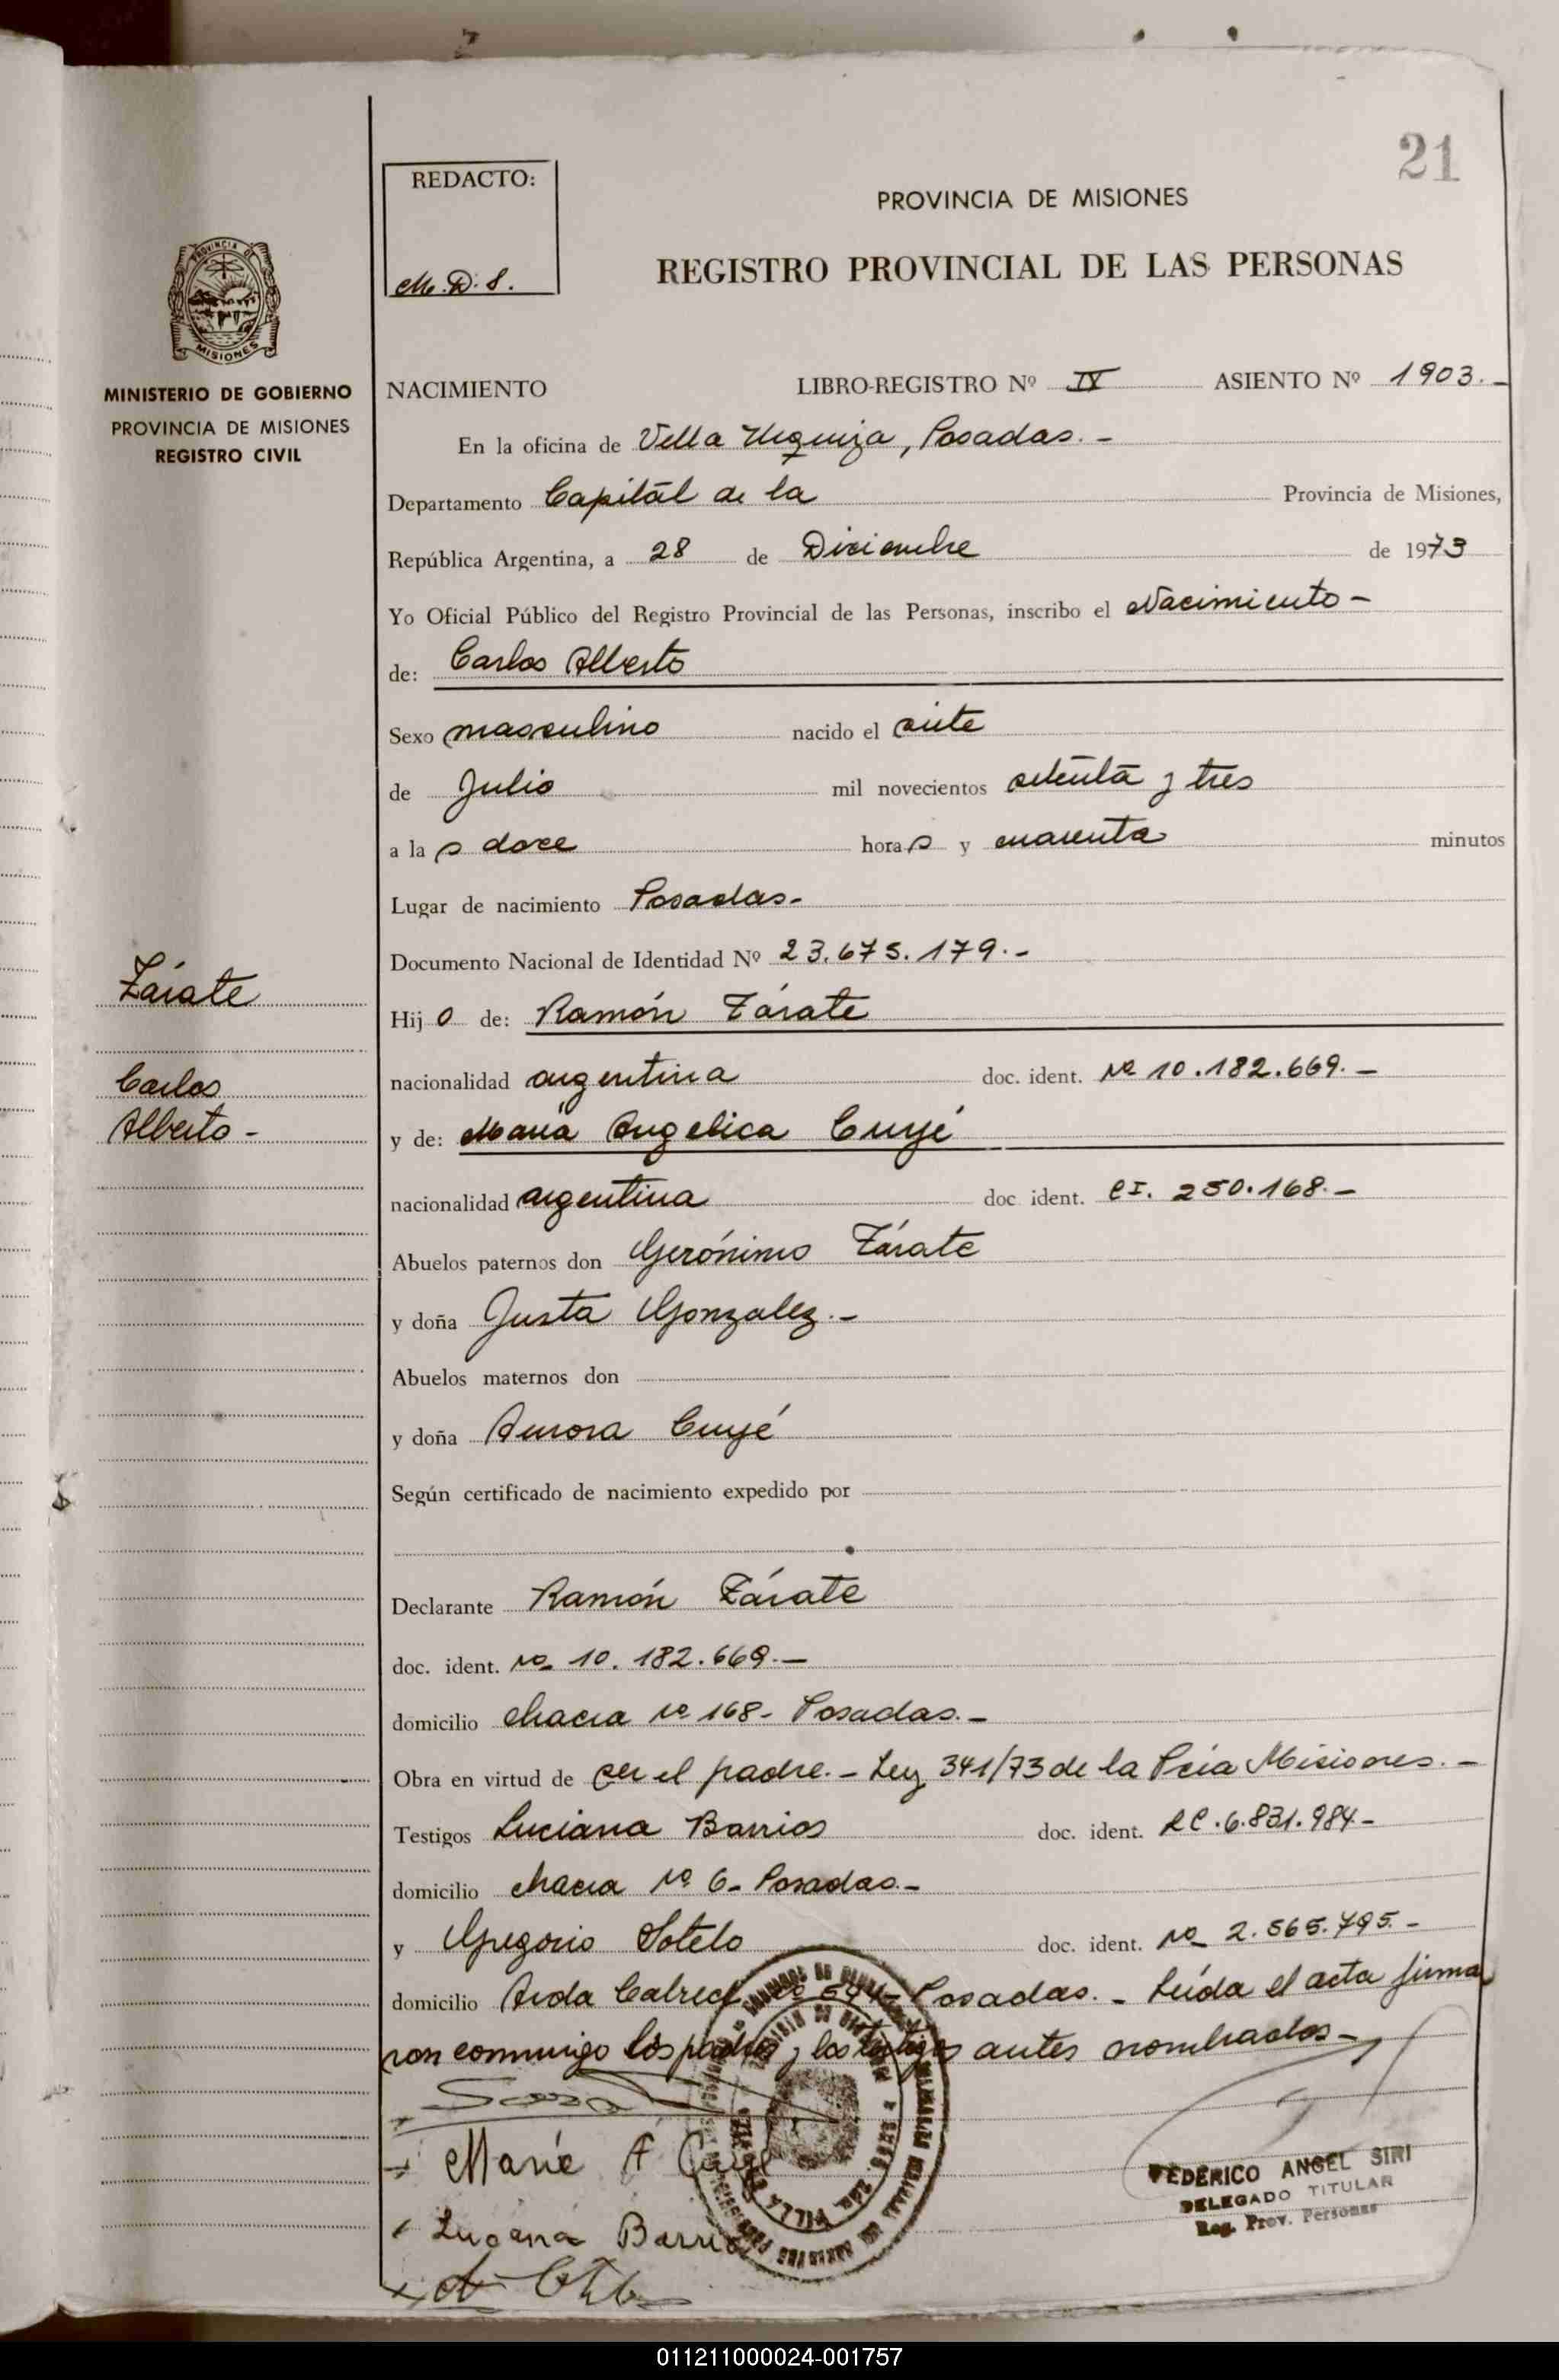 21
REDACTO:
M. D. S.
PROVINCIA DE MISIONES
REGISTRO PROVINCIAL DE LAS PERSONAS
PROVINCIA D
MISIONES
MINISTERIO DE GOBIERNO
PROVINCIA DE MISIONES
REGISTRO CIVIL
NACIMIENTO LIBRO-REGISTRO Nº IV ASIENTO Nº 1903.-
En la oficina de Villa Urquiza, Posadas.-
Departamento Capital de la Provincia de Misiones,
República Argentina, a 28 de Diciembre de 1973
Yo Oficial Público del Registro Provincial de las Personas, inscribo el Nacimiento-
de: Carlos Alberto
Sexo masculino nacido el siete
de Julio mil novecientos setenta y tres
a la s doce hora s y cuarenta minutos
Lugar de nacimiento Posadas-
Documento Nacional de Identidad Nº 23.675.179.-
Zárate
Carlos
Alberto-
Hij o de: Ramón Zárate
nacionalidad argentina doc. ident. Nº 10.182.669.-
y de: María Angelica Cuyé
nacionalidad argentina doc ident. CI. 250.168.-
Abuelos paternos don Gerónimo Zárate
y doña Justa Gonzalez.-
Abuelos maternos don
y doña Aurora Cuyé
Según certificado de nacimiento expedido por
Declarante Ramón Zárate
doc. ident. Nº 10.182.669.-
domicilio Chacra Nº 168- Posadas.-
Obra en virtud de ser el padre.- Ley 341/73 de la Pcia Misiones.-
Testigos Luciana Barrios doc. ident. LC.6.831.984-
domicilio chacra Nº 6- Posadas.-
y Gregorio Sotelo doc. ident. Nº 2.565.795.-
domicilio Avda Posadas.- Leída el acta firma
ron conmigo los padres y los testigos antes nombrados-
Marie A
Barrio
FEDERICO ANGEL SIRI
DELEGADO TITULAR
Reg. Prov. Personas
011211000024-001757